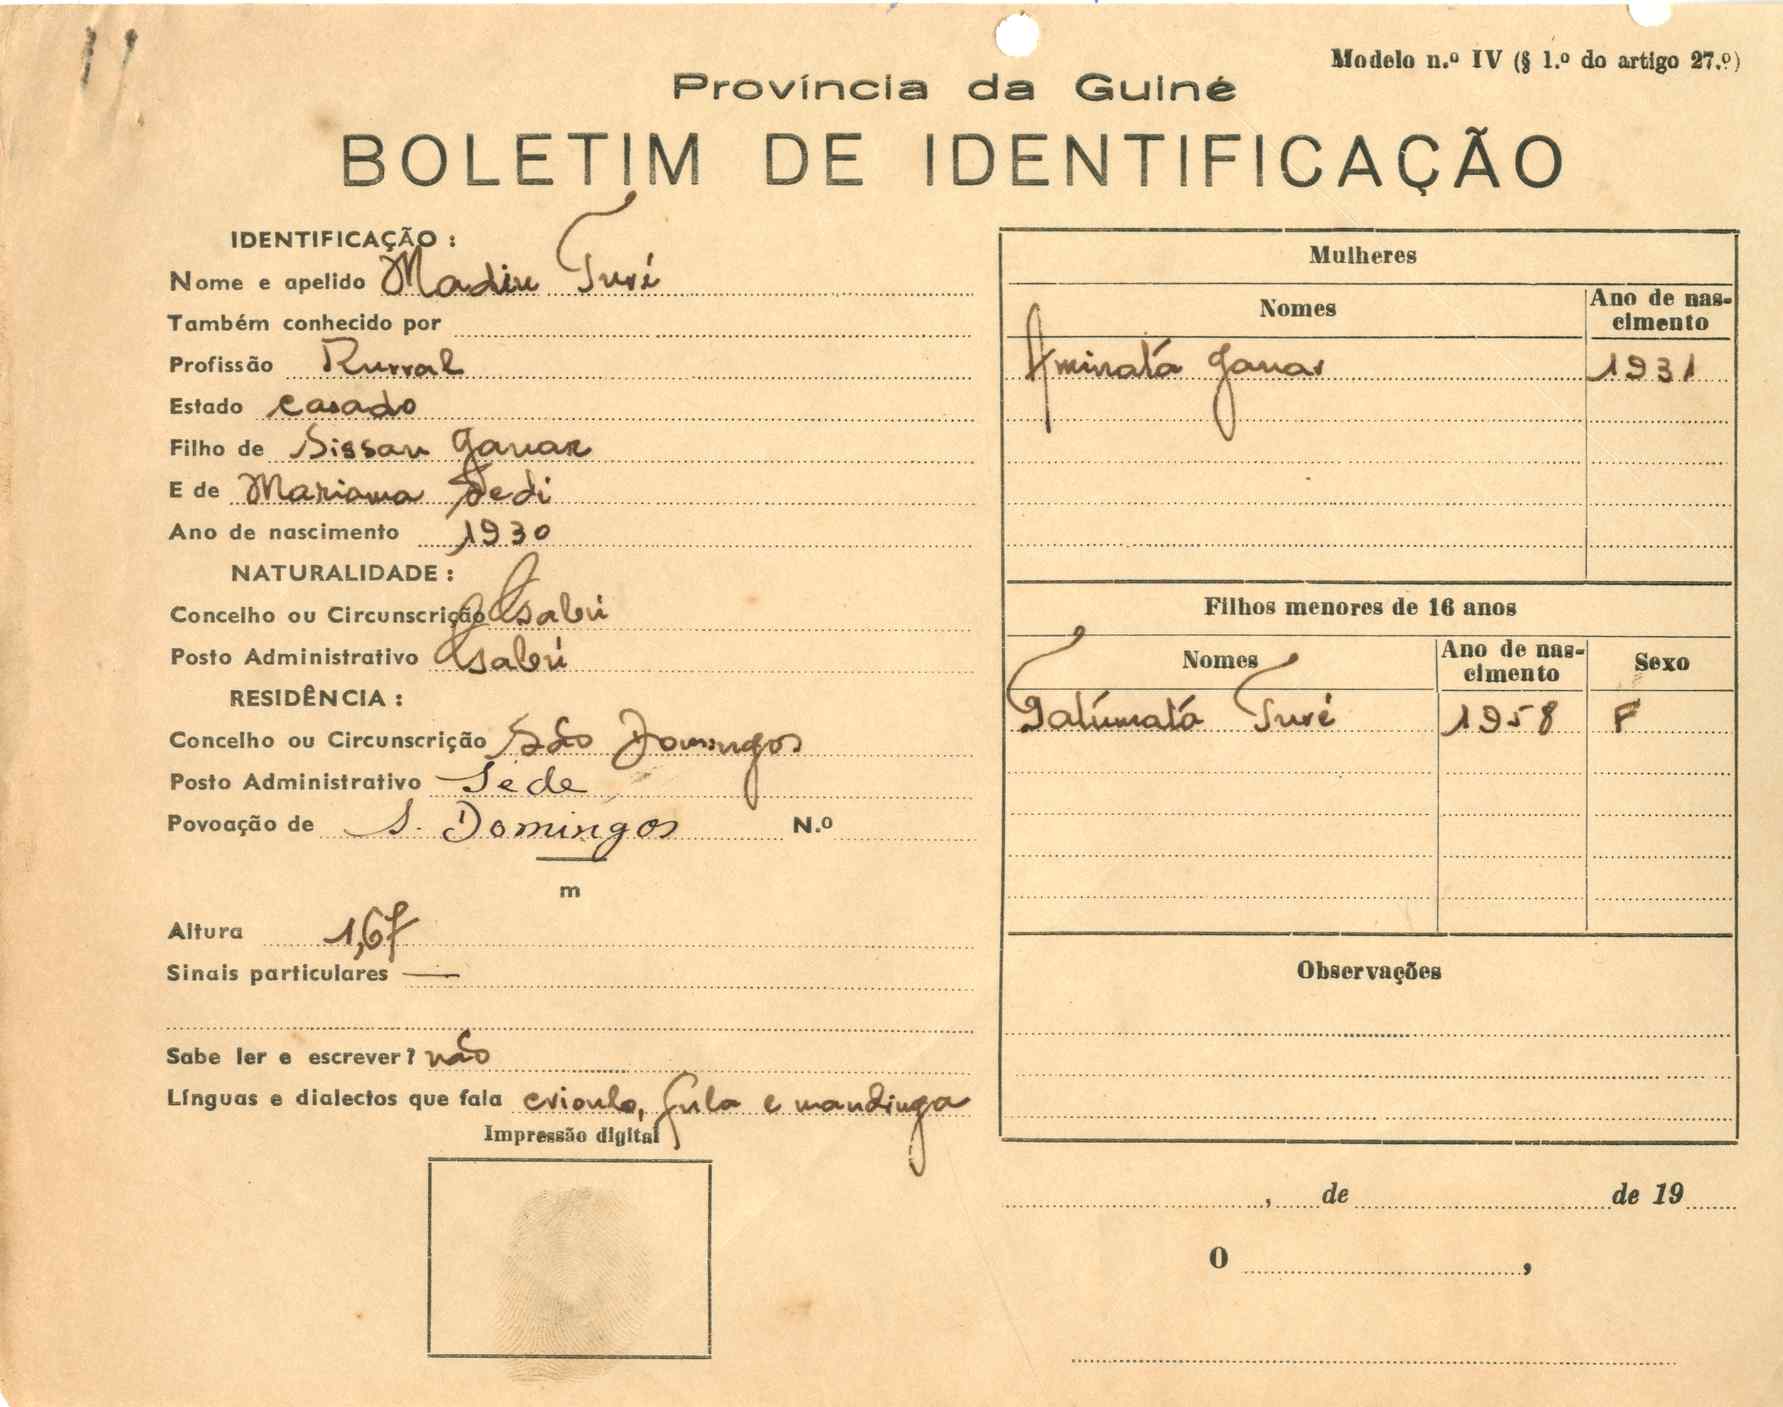 Modelo n.º IV (§ 1.º do artigo 27.º)
Província da Guiné
BOLETIM DE IDENTIFICAÇÃO
IDENTIFICAÇÃO :
Nome e apelido Madiu Turé
Também conhecido por
Profissão Rurral
Estado casado
Filho de Sissau Ganar
E de Mariama Dedi
Ano de nascimento 1930
NATURALIDADE :
Concelho ou Circunscrição Gabú
Posto Administrativo Gabú
RESIDÊNCIA :
Concelho ou Circunscrição São Domingos
Posto Administrativo Séde
Povoação de S. Domingos N.º
m
Altura 1,67
Sinais particulares —
Sabe ler e escrever? não
Línguas e dialectos que fala crioulo, fula e mandinga
Impressão digital
Mulheres
Nomes Ano de nas-
cimento
Aminatá Ganar 1931
Filhos menores de 16 anos
Nomes Ano de nas-
cimento Sexo
Fatúmatá Turé 1958 F
Observações
, de de 19
O ,